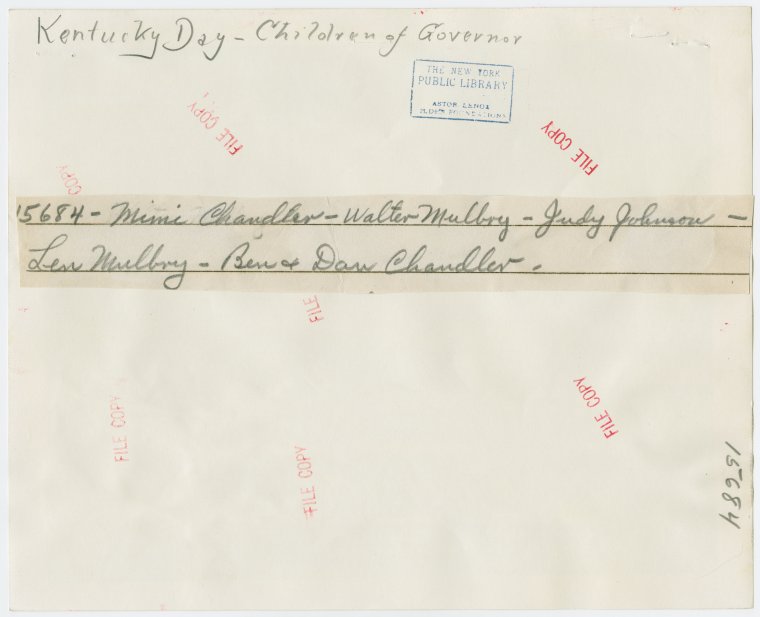 Kentucky Day - Children of Governor
THE NEW YORK
PUBLIC LIBRARY
ASTOR, LENOX
TILDEN FOUNDATIONS
FILE COPY
FILE COPY
COPY
15684 - Mimi Chandler - Walter Mulbry - Judy Johnson -
Len Mulbry - Ben & Dan Chandler.
FILE
FILE COPY
FILE COPY
FILE COPY
15684